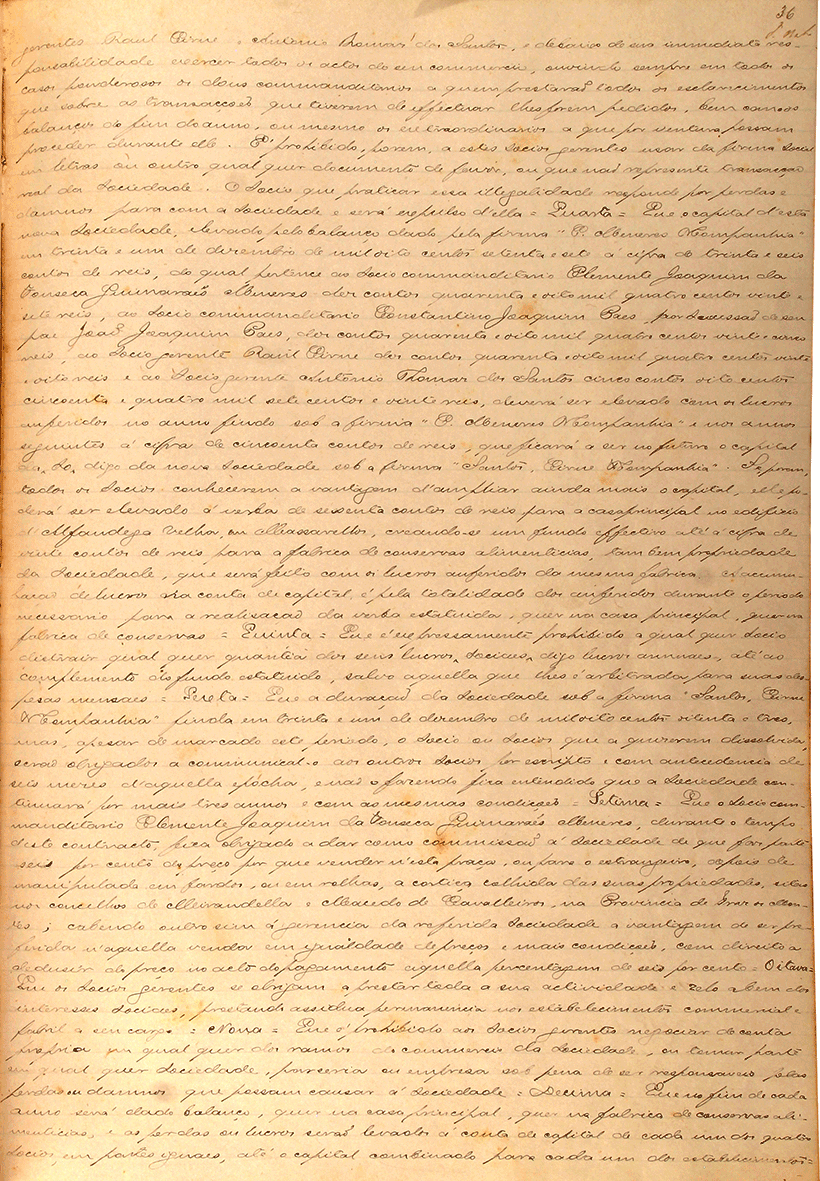 36
gerentes Raul Cirne e Antonio Thomaz dos Santos, e debaixo de sua immediata res-
ponsabilidade exercer todos os actos do seu commercio, ouvindo sempre em todos os
casos ponderosos os dous commanditarios a quem prestarão todos os esclarecimentos
que sobre as transacções que tiverem de effectuar lhes forem pedidos, bem como os
balanços do fim do anno, ou mesmo os extraordinarios a que por ventura possam
proceder durante elle. É prohibido, porem, a estes socios gerentes usar da firma social
em letras ou outro qual quer documento de favor, ou que não represente transacção
real da Sociedade. O Socio que praticar essa illegalidade responde por perdas e
damnos para com a Sociedade e será expulso d'ella = Quarta = Que o capital d'esta
nova Sociedade, elevado pelo balanço dado pela firma "C. Meneres & Companhia"
em trinta e um de dezembro de mil oito centos setenta e sete á cifra de trinta e seis
contos de reis, do qual pertence ao socio commanditario Clemente Joaquim da
Fonseca Guimarães Meneres dez contos quarenta e oito mil quatro centos vinte e
sete reis, ao Socio commanditario Constantino Joaquim Paes, por successão de seu
pae João Joaquim Paes, dez contos quarenta e oito mil quatro centos vinte e cinco
reis, ao Socio gerente Raul Cirne dez contos quarenta e oito mil quatro centos vinte
e oito reis e ao Socio gerente Antonio Thomaz dos Santos cinco contos oito centos
cincoenta e quatro mil sete centos e vinte reis, deverá ser elevado com os lucros
auferidos no anno findo sob a firma "C. Meneres & Companhia" e nos annos
seguintes á cifra de cincoenta contos de reis, que ficará a ser no futuro o capital
da So, digo da nova Sociedade sob a firma "Santos, Cirne & Companhia". Se, porem,
todos os Socios conhecerem a vantagem d'ampliar ainda mais o capital, elle po-
derá ser elevado á verba de sessenta contos de reis para a casa principal no edificio
d'Alfandega Velha, ou Massarellos, creando-se um fundo effectivo até á cifra de
vinte contos de reis, para a fabrica de conservas alimenticias, tambem propriedade
da Sociedade, que será feito com os lucros auferidos da mesma fabrica. A accumu-
lação de lucros na conta de capital, é pela totalidade dos auferidos durante o periodo
necessario para a realisação da verba estatuida, quer na casa principal, quer na
fabrica de conservas = Quinta = Que é expressamente prohibido a qual quer socio
distrair qual quer quantia dos seus lucros, sociaes, digo lucros annuaes, até ao
complemento do fundo estatuido, salvo aquella que lhes é arbitrada para suas des-
pesas mensaes = Sexta = Que a duração da Sociedade sob a firma "Santos, Cirne
& Companhia" finda em trinta e um de dezembro de mil oito centos oitenta e tres,
mas, apesar de marcado este periodo, o Socio ou Socios que a quizerem dissolvida,
serão obrigados a communical-o aos outros Socios por escripto e com antecedencia de
seis mezes d'aquella epocha, e não o fazendo fica entendido que a Sociedade con-
tinuará por mais tres annos e com as mesmas condições = Setima = Que o Socio com-
manditario Clemente Joaquim da Fonseca Guimarães Meneres, durante o tempo
deste contracto, fica obrigado a dar como commissão á Sociedade de que faz parte
seis por cento do preço por que vender n'esta praça, ou para o estrangeiro, depois de
manipulada em fardos, ou em rolhas, a cortiça colhida das suas propriedades, sitas
nos concelhos de Mirandella e Macedo de Cavalleiros, na Provincia de Traz os Mon-
tes; cabendo outro sim á gerencia da referida Sociedade a vantagem de ser pre-
ferida n'aquella venda em igualdade de preços e mais condições, com direito a
deduzir do preço no acto do pagamento aquella percentagem de seis por cento = Oitava =
Que os Socios gerentes se obrigam a prestar toda a sua actividade e zelo a bem dos
interesses sociaes, prestando assidua permanencia nos estabelecimentos commercial e
fabril a seu cargo = Nona = Que é prohibido aos Socios gerentes negociar de conta
propria em qual quer dos ramos de commercio da Sociedade, ou tomar parte
em qual quer Sociedade, parceria ou empresa sob pena de ser responsaveis pelas
perdas ou damnos que possam causar á Sociedade = Decima = Que no fim de cada
anno será dado balanço, quer na casa principal, quer na fabrica de conservas ali-
menticias, e as perdas ou lucros serão levados á conta de capital de cada um dos quatro
socios, em partes iguaes, até o capital combinado para cada um dos estabelecimentos =